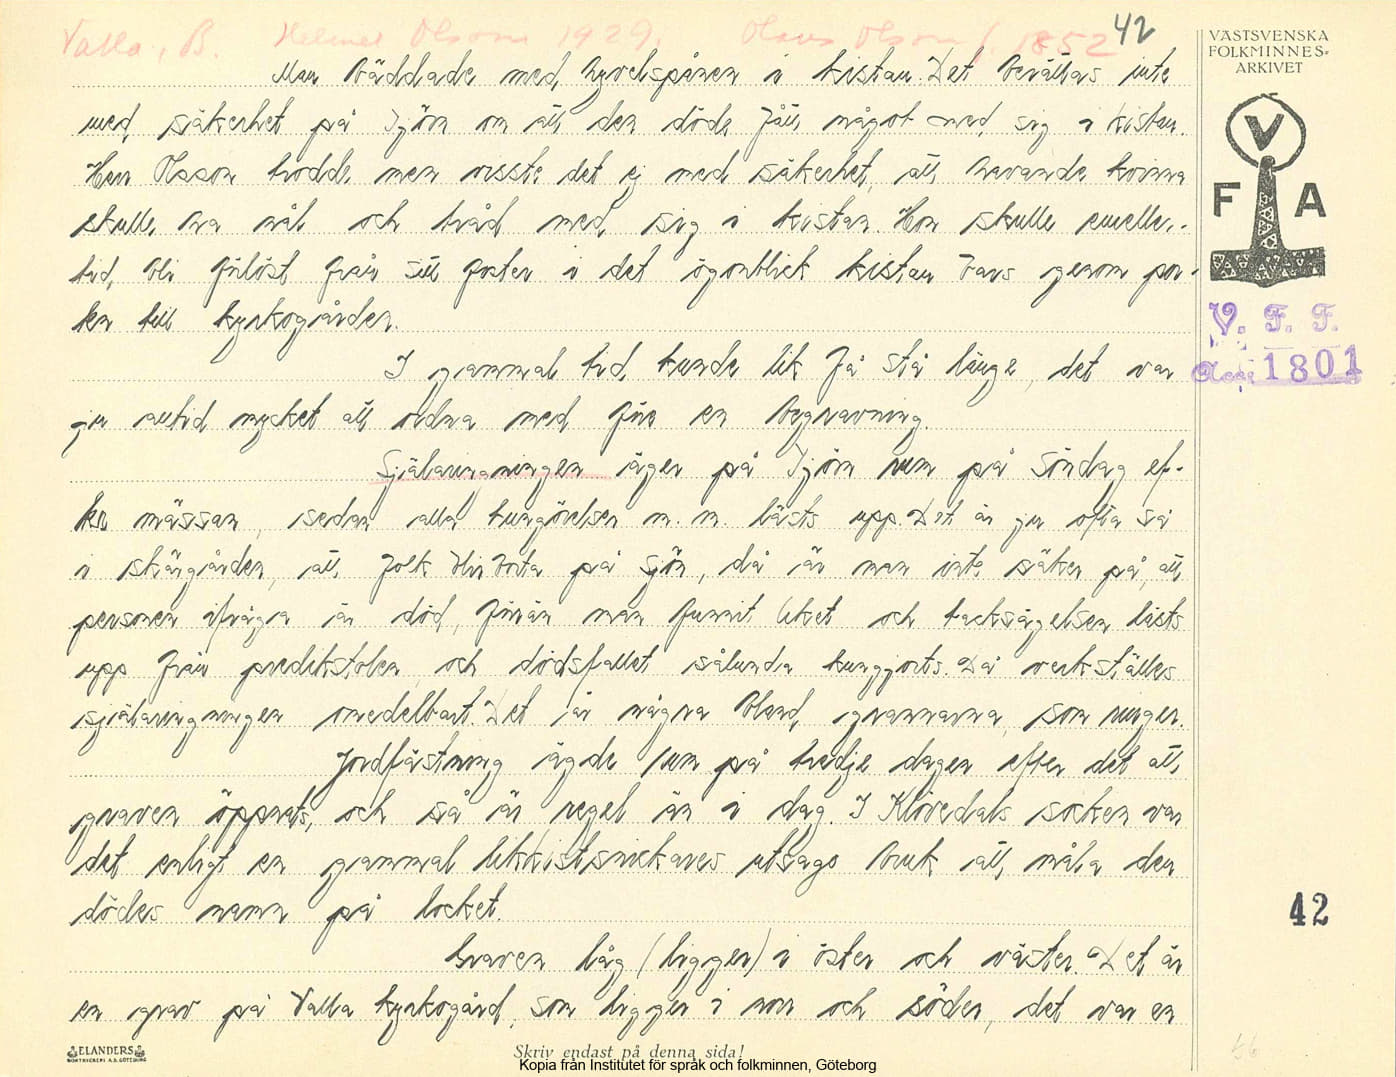 Valla, B. Helmer Olsson 1929. Olaus Olsson f. 1852
42
VÄSTSVENSKA
FOLKMINNES-
ARKIVET
V
F A
V. F. F.
Acc. 1801
Man bäddade med hyvelspånen i kistan. Det berättas inte
med säkerhet på Tjörn om att den döde fått något med sig i kistan.
Herr Olsson trodde men visste det ej med säkerhet, att havande kvinna
skulle ha nål och tråd med sig i kistan. Hon skulle emeller-
tid bli förlöst från sitt foster i det ögonblick kistan bars genom por-
ten till kyrkogården.
I gammal tid kunde lik få stå länge, det var
ju alltid mycket att ordna med för en begravning.
Själaringningen äger på Tjörn rum på söndag ef-
ter mässan, sedan alla kungörelser m. m. lästs upp. Det är ju ofta så
i skärgården, att folk blir borta på sjön, då är man inte säker på, att
personen ifråga är död, förrän man funnit liket och tacksägelsen lästs
upp från predikstolen, och dödsfallet sålunda kungjorts. Då verkställes
själaringningen omedelbart. Det är några bland grannarna, som ringer.
Jordfästning ägde rum på tredje dagen efter det att
graven öppnats, och så är regel än i dag. I Klövedals socken var
det enligt en gammal likkistsnickares utsago bruk att måla den
dödes namn på locket.
Graven låg (ligger) i öster och väster. Det är
en grav på Valla kyrkogård, som ligger i norr och söder, det var en
42
56
ELANDERS
BOKTRYCKERI A.B. GÖTEBORG
Skriv endast på denna sida!
Kopia från Institutet för språk och folkminnen, Göteborg